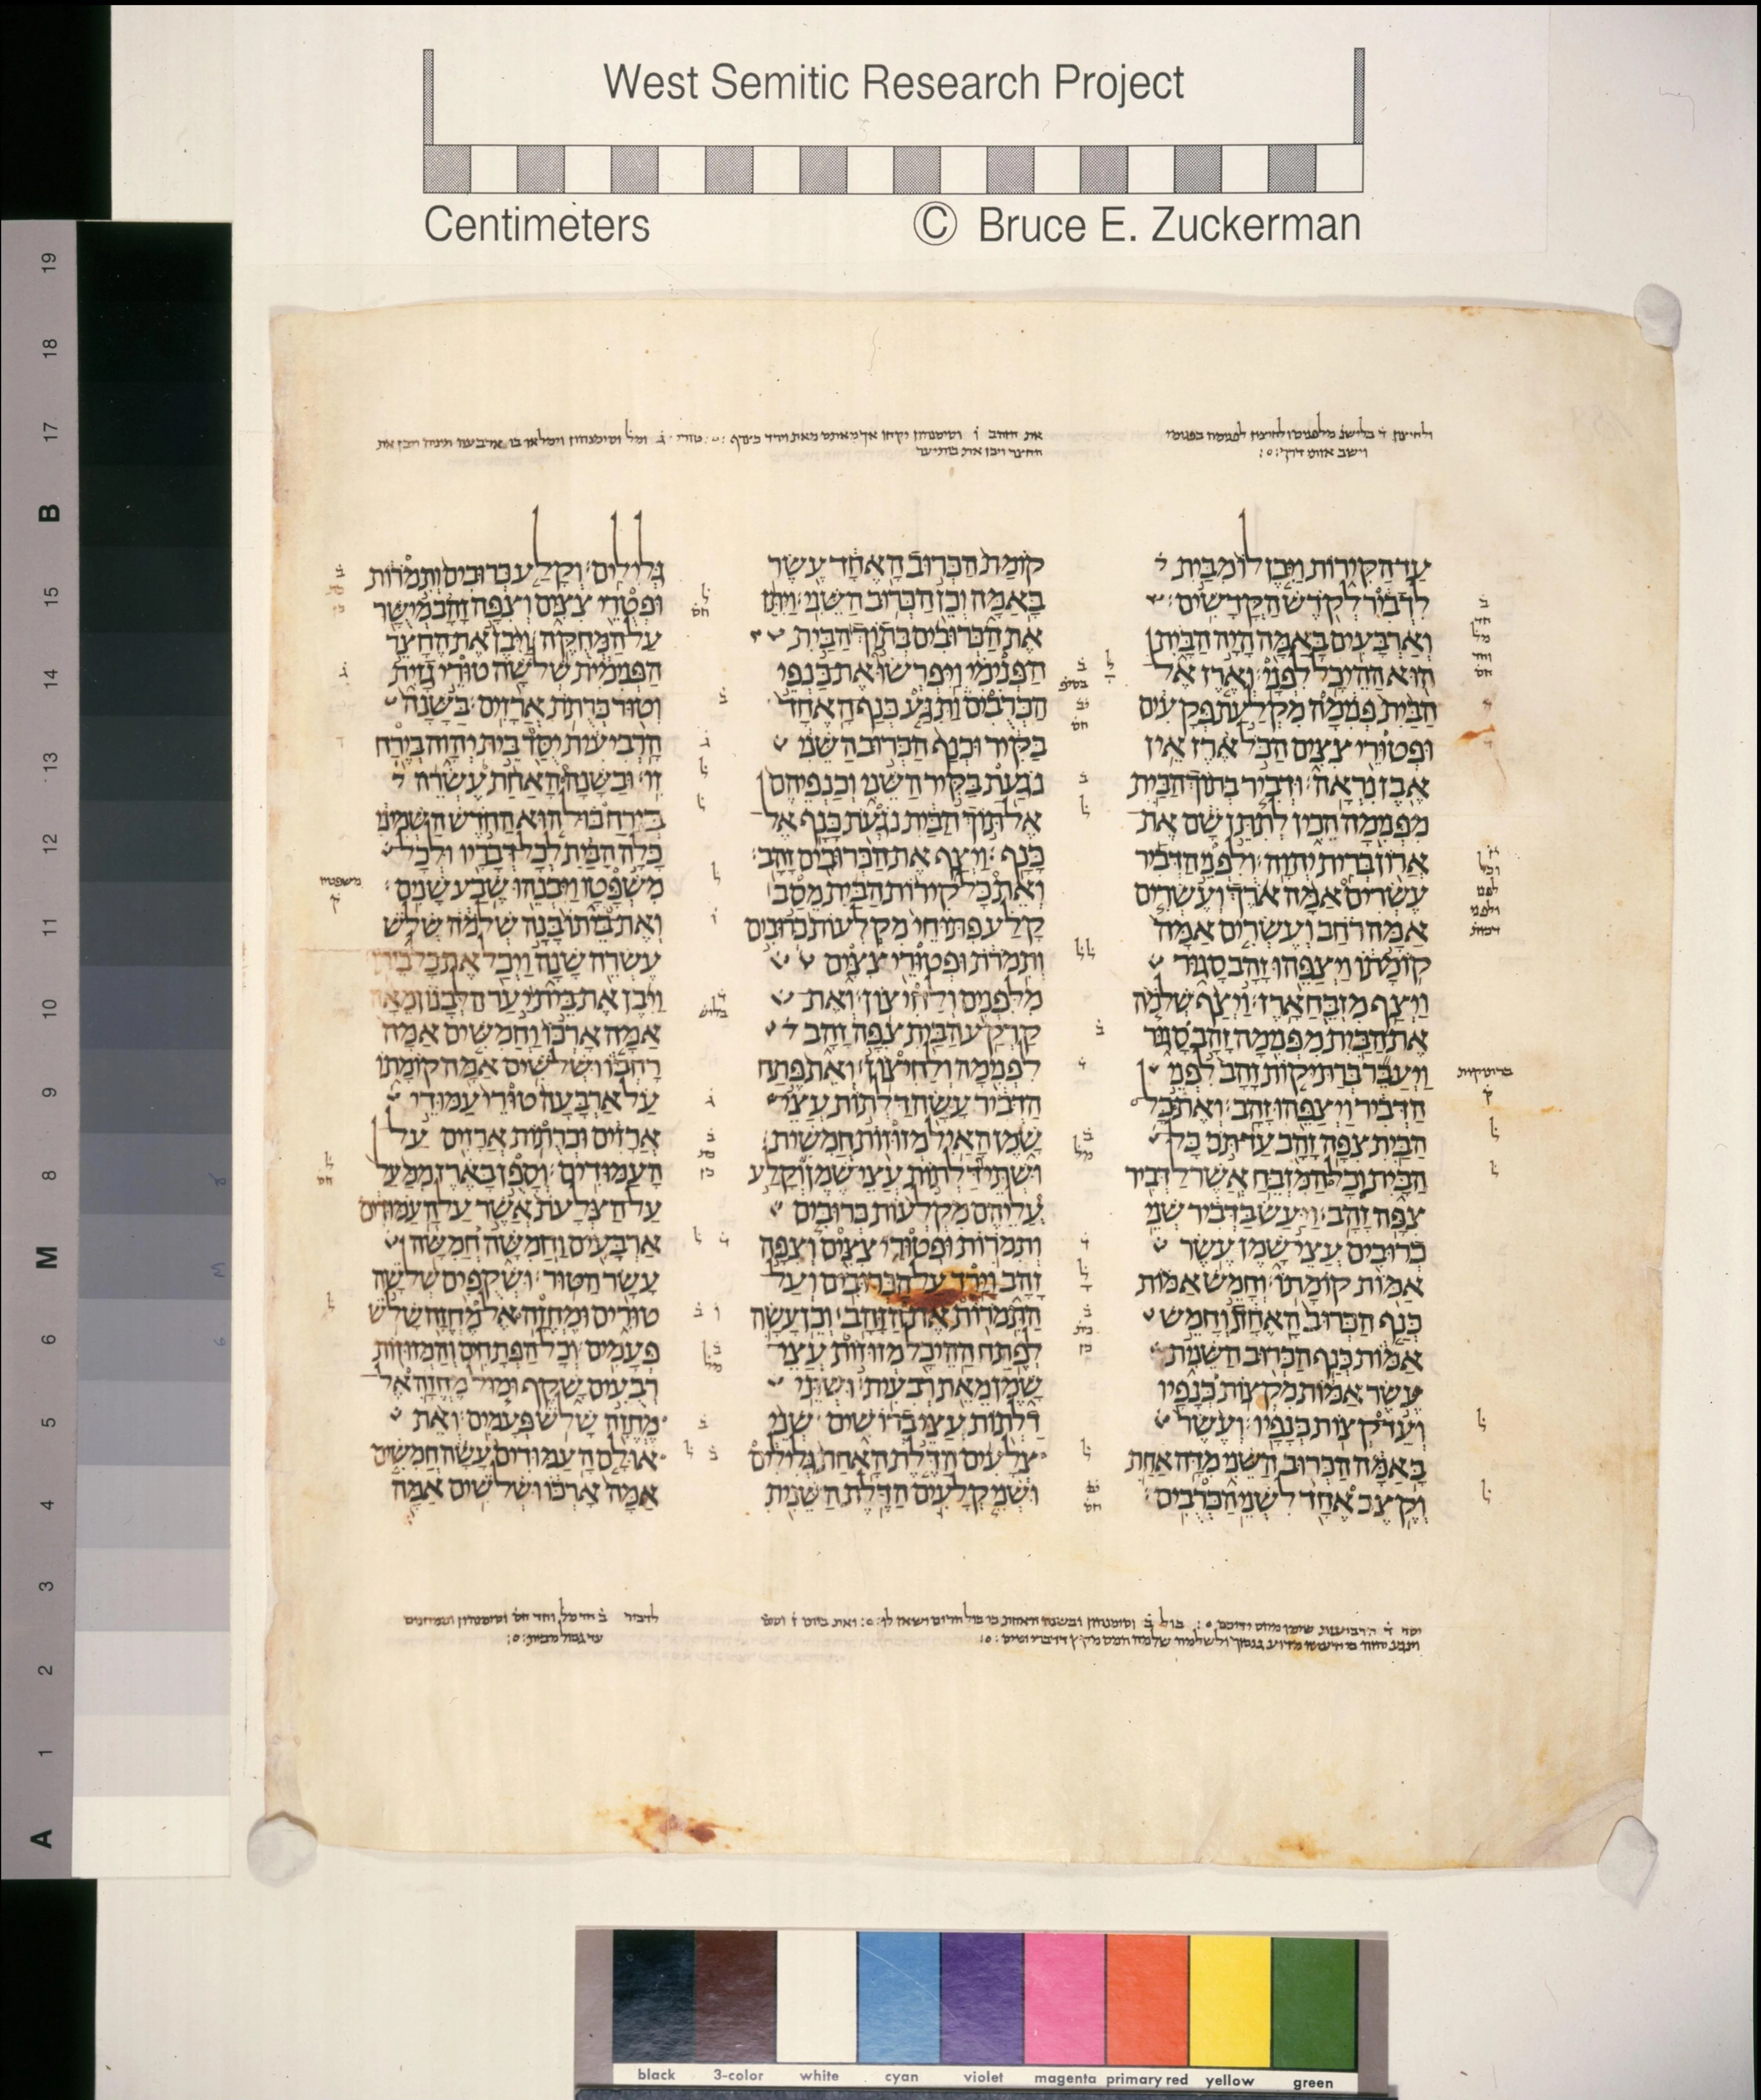 West Semitic Research Project
Centimeters © Bruce E. Zuckerman
עד הקירות ויבן לו מבית
לדביר לקדש הקדשים׃
וארבעים באמה היה הבית
הוא ההיכל לפני׃ וארז אל
הבית פנימה מקלעת פקעים
ופטורי צצים הכל ארז אין
אבן נראה׃ ודביר בתוך הבית
מפנימה הכין לתתן שם את
ארון ברית יהוה׃ ולפני הדביר
עשרים אמה ארך ועשרים
אמה רחב ועשרים אמה
קומתו ויצפהו זהב סגור
ויצף מזבח ארז׃ ויצף שלמה
את הבית מפנימה זהב סגור
ויעבר ברתיקות זהב לפני
הדביר ויצפהו זהב׃ ואת כל
הבית צפה זהב עד תם כל
הבית וכל המזבח אשר לדביר
צפה זהב׃ ויעש בדביר שני
כרובים עצי שמן עשר
אמות קומתו׃ וחמש אמות
כנף הכרוב האחת וחמש
אמות כנף הכרוב השנית
עשר אמות מקצות כנפיו
ועד קצות כנפיו׃ ועשר
באמה הכרוב השני מדה אחת
וקצב אחד לשני הכרבים׃
קומת הכרוב האחד עשר
באמה וכן הכרוב השני׃ ויתן
את הכרובים בתוך הבית
הפנימי ויפרשו את כנפי
הכרבים ותגע כנף האחד
בקיר וכנף הכרוב השני
נגעת בקיר השני וכנפיהם
אל תוך הבית נגעת כנף אל
כנף׃ ויצף את הכרובים זהב׃
ואת כל קירות הבית מסב
קלע פתוחי מקלעות כרובים
ותמרת ופטורי צצים
מלפנים ולחיצון׃ ואת
קרקע הבית צפה זהב
לפנימה ולחיצון׃ ואת פתח
הדביר עשה דלתות עצי
שמן האיל מזוזות חמשית׃
ושתי דלתות עצי שמן וקלע
עליהם מקלעות כרובים
ותמרות ופטורי צצים וצפה
זהב וירד על הכרובים ועל
התמרות את הזהב׃ וכן עשה
לפתח ההיכל מזוזות עצי
שמן מאת רבעית׃ ושתי
דלתות עצי ברושים שני
צלעים הדלת האחת גלילים
ושני קלעים הדלת השנית
גלילים׃ וקלע כרובים ותמרות
ופטרי צצים וצפה זהב מישר
על המחקה׃ ויבן את החצר
הפנימית שלשה טורי גזית
וטור כרתת ארזים׃ בשנה
הרביעית יסד בית יהוה בירח
זו׃ ובשנה האחת עשרה
בירח בול הוא החדש השמיני
כלה הבית לכל דבריו ולכל
משפטו ויבנהו שבע שנים׃
ואת ביתו בנה שלמה שלש
עשרה שנה ויכל את כל ביתו׃
ויבן את בית יער הלבנון מאה
אמה ארכו וחמשים אמה
רחבו ושלשים אמה קומתו
על ארבעה טורי עמודי
ארזים וכרתות ארזים על
העמודים׃ וספן בארז ממעל
על הצלעת אשר על העמודים
ארבעים וחמשה חמשה
עשר הטור׃ ושקפים שלשה
טורים ומחזה אל מחזה שלש
פעמים׃ וכל הפתחים והמזוזות
רבעים שקף ומול מחזה אל
מחזה שלש פעמים׃ ואת
אולם העמודים עשה חמשים
אמה ארכו ושלשים אמה
A 1 2 3 4 5 6 M 8 9 10 11 12 13 14 15 B 17 18 19
black 3-color white cyan violet magenta primary red yellow green